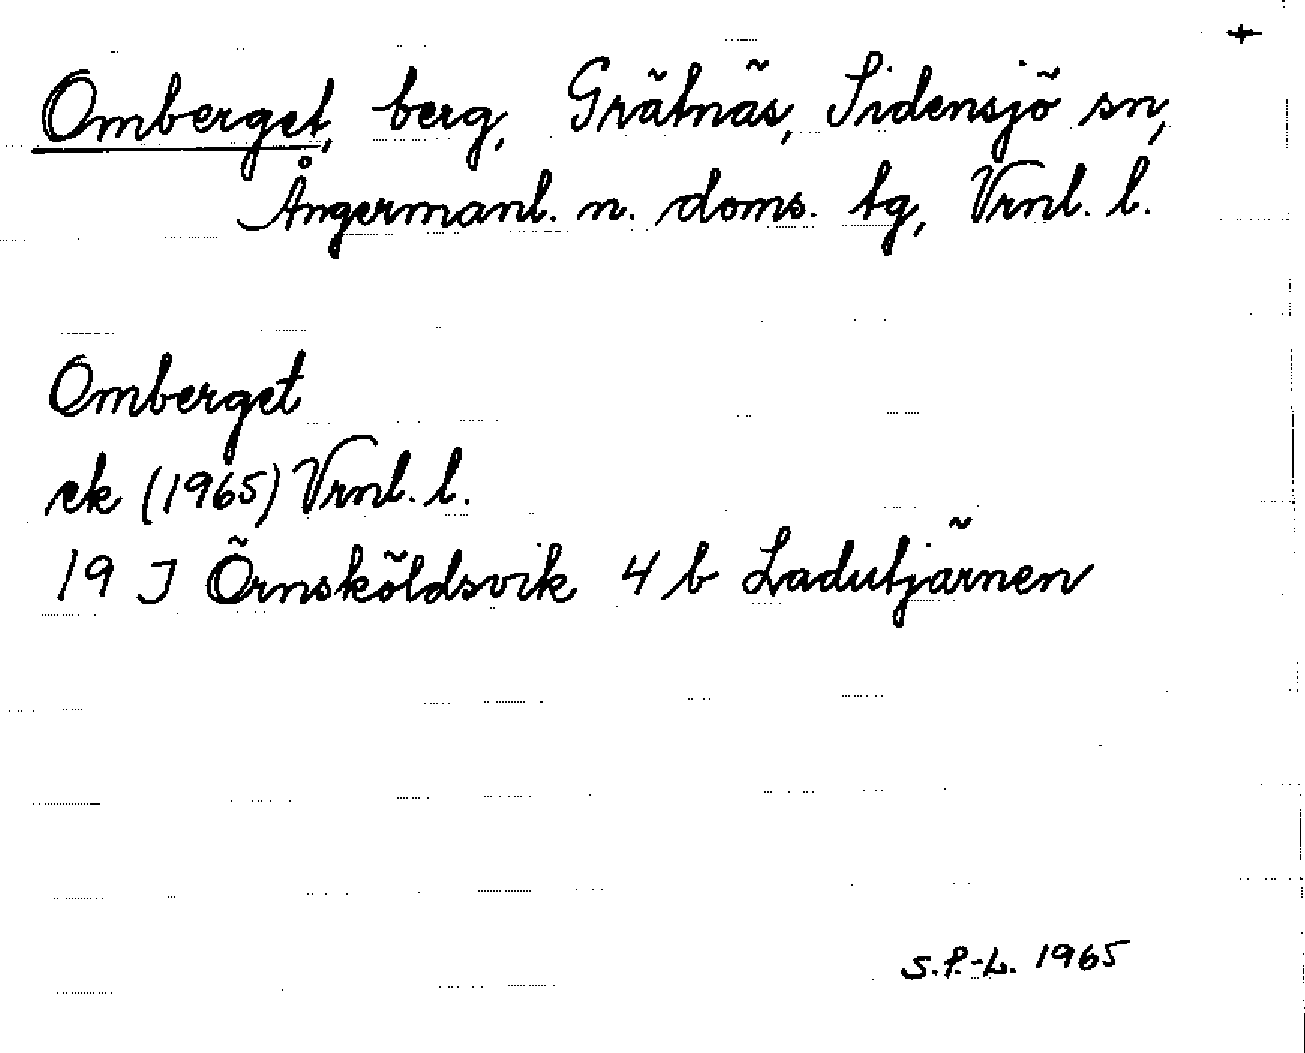 +
Omberget, berg, Grätnäs, Sidensjö sn,
Ångermanl. n. doms. tg, Vrnl. l.
Omberget
ek (1965) Vrnl. l.
19 J Örnsköldsvik 4 b Ladutjärnen
S.P.-L. 1965